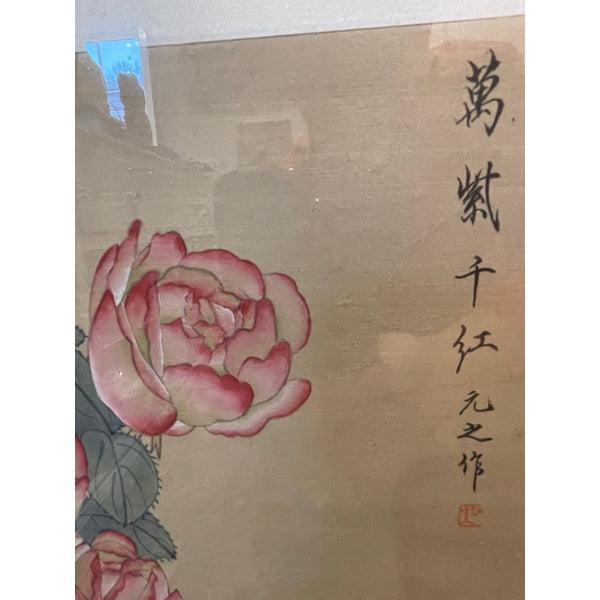 萬紫千紅元之作